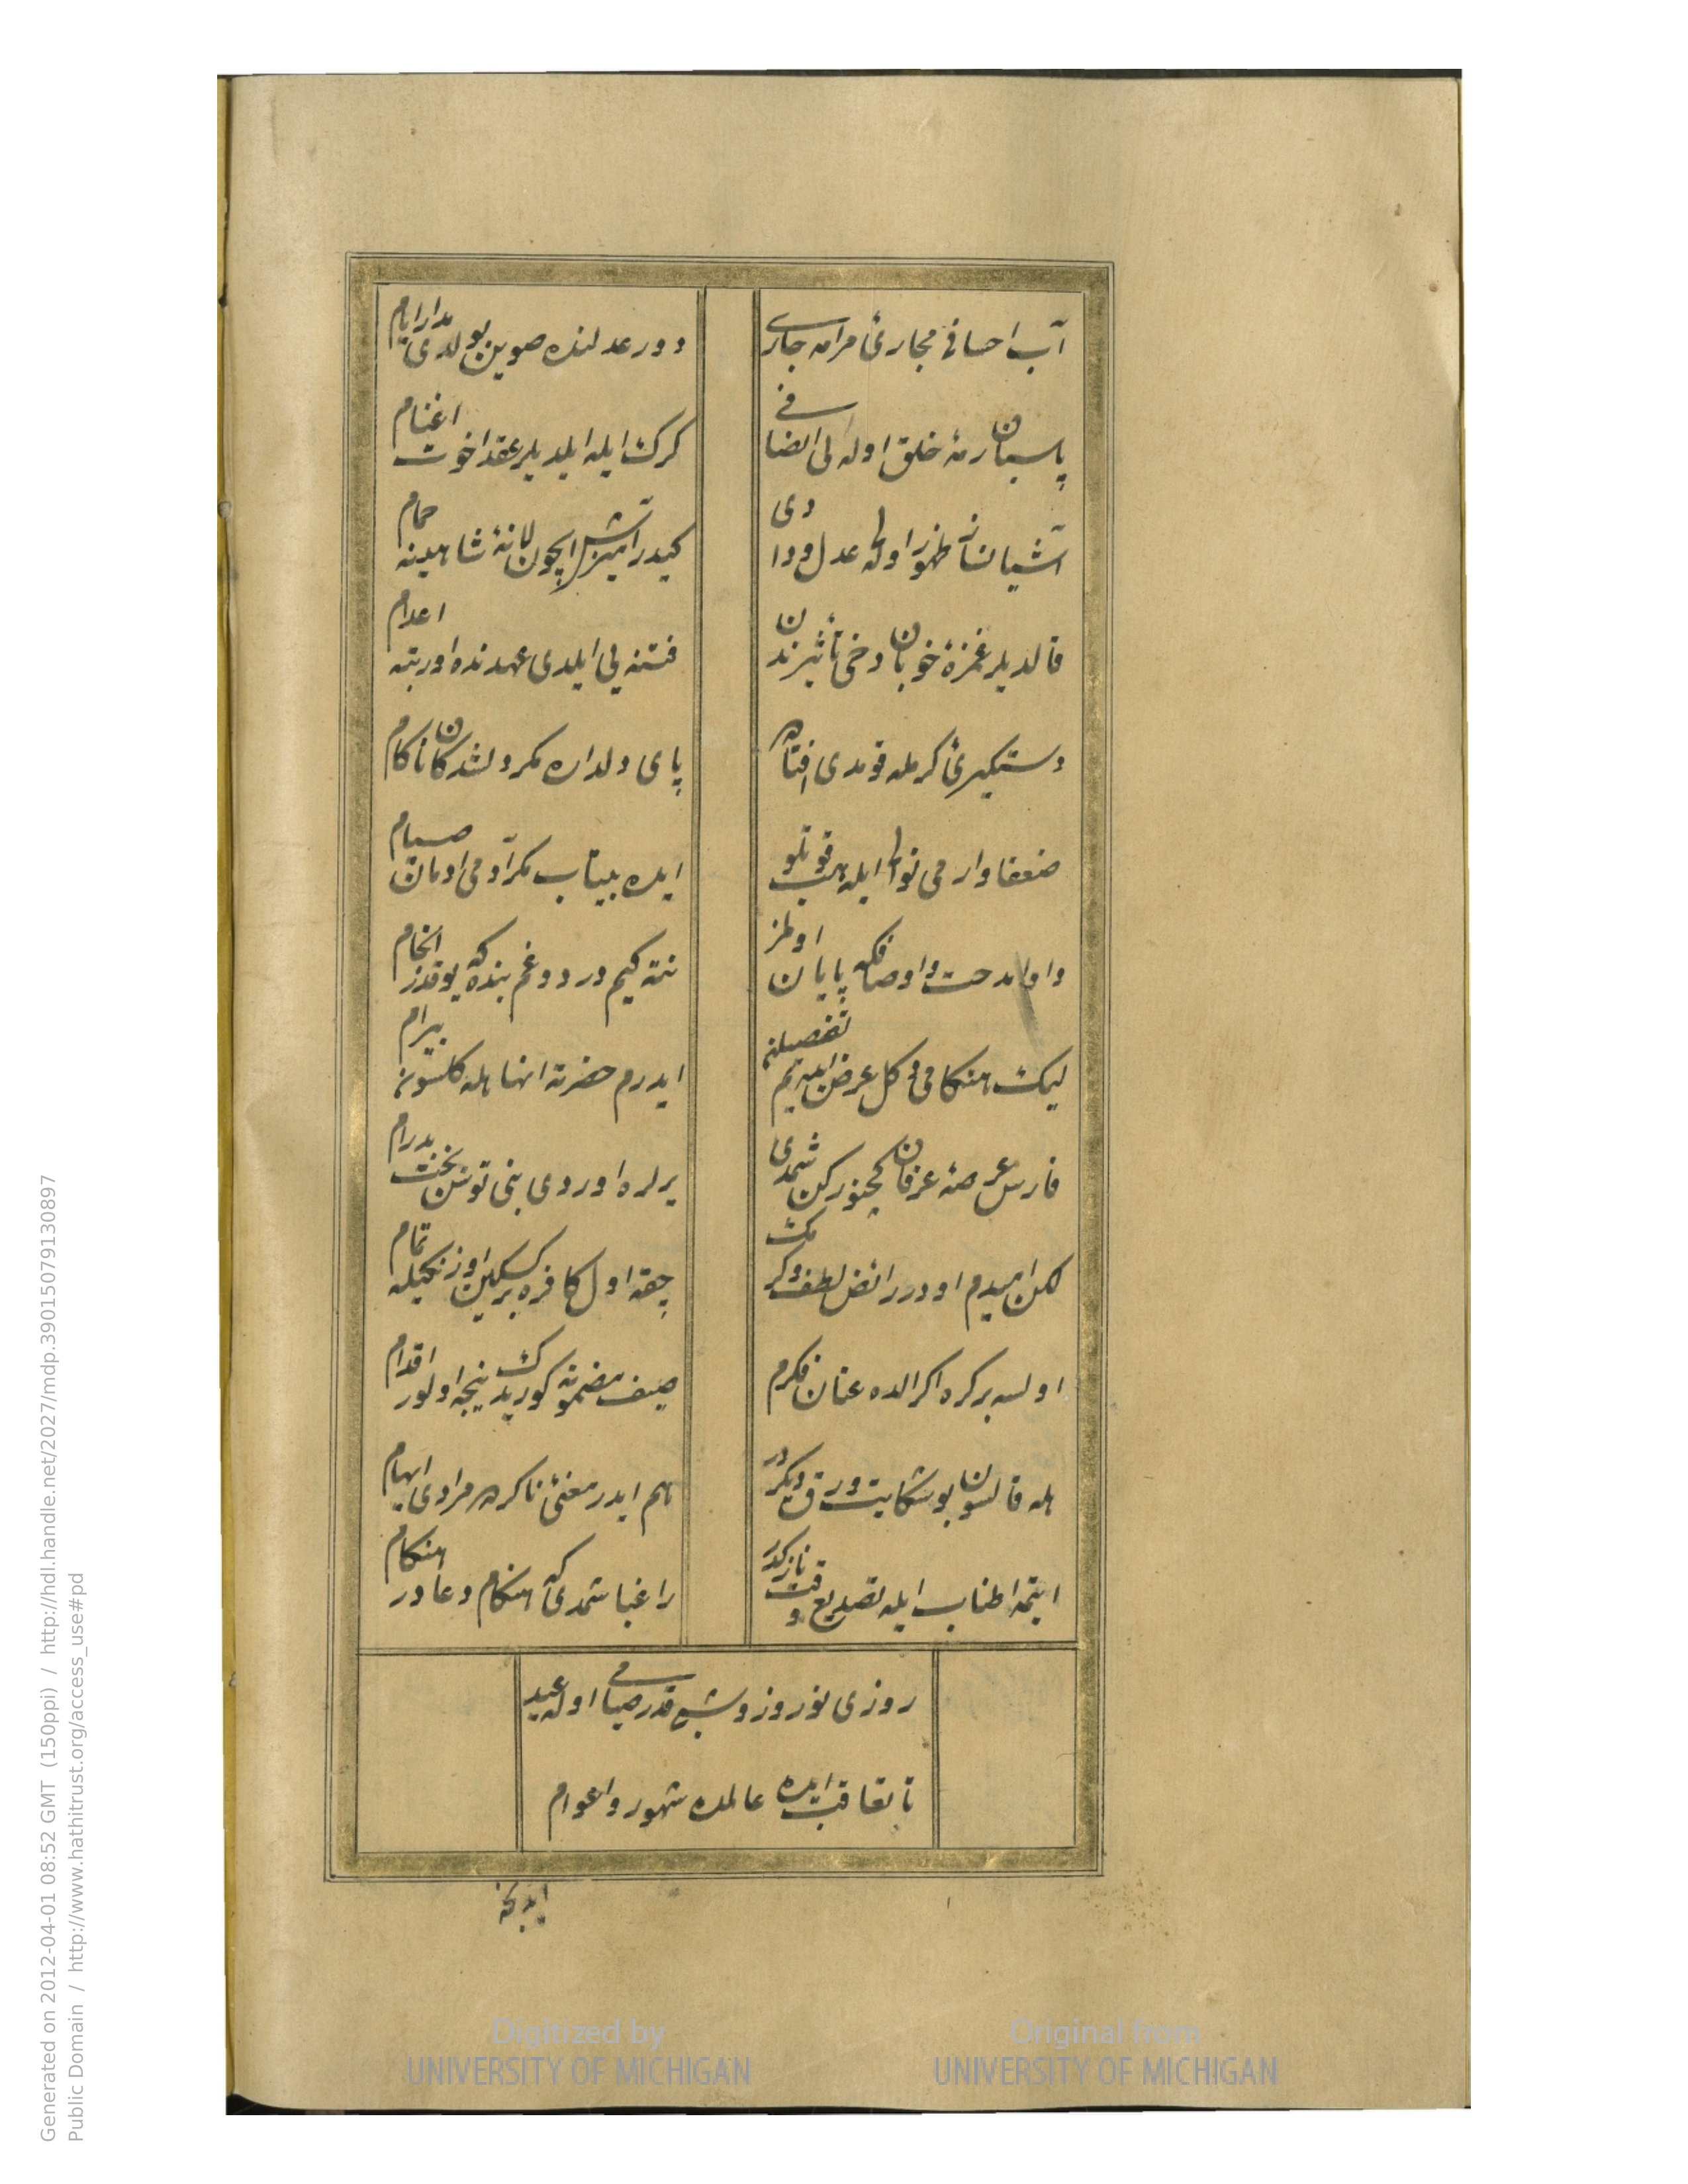 آب احسانی مجارئ مرامه جاری
دور عدلنده صوین بولدی مدار ایام
پاسبان رمۀ خلق اوله لی انصافی
کرک ایله ایلدیلر عقد اخوت اغنام
آشیانساز ظهور اوله لی عدل و دادی
کیدر آمیزش ایچون لانۀ شاهینه حمام
قالدیلر غمزۀ خوبان دخی تأثیرندن
فتنه یی ایلدی عهدنده او رتبه اعدام
دستکیرئ کرمله قومدی افتاده
پای دلداره مکر دلشدکان ناکام
ضعفا وارمی نوالی ایله هپ قوتلو
ایده بیتاب مکر آدمی اومان صیام
داورا مدحت و اوصافکه پایان اولمز
نته کیم درد و غم بنده که یوقدر انجام
لیک هنکامی دکل عرض ایده یم تفصیلن
ایدرم حضرته انها هله کلسون بیرام
فارس عرصۀ عرفان کچنورکن شمدی
یرلره اوردی بنی توسن بخت بدرام
لکن امیدم اودر رائض لطف و کرمک
چقه اول کافره بر سکین اوزنکیله تمام
اولسه بر کره اکر الده عنان فکرم
صیف مضمونه کوریدک نیجه اولور اقدام
هله قالسون بو شکایت ورق دیکردر
هم ایدر معنئ ناکرده مرادی ایهام
ایتمه اطناب ایله تصدیع وقت نازکدر
راغبا شمدی که هنکام دعادر هنکام
روزی نوروز و شبی قدر صیامی اوله عید
تا تعاقب ایده عالمده شهور و اعوام